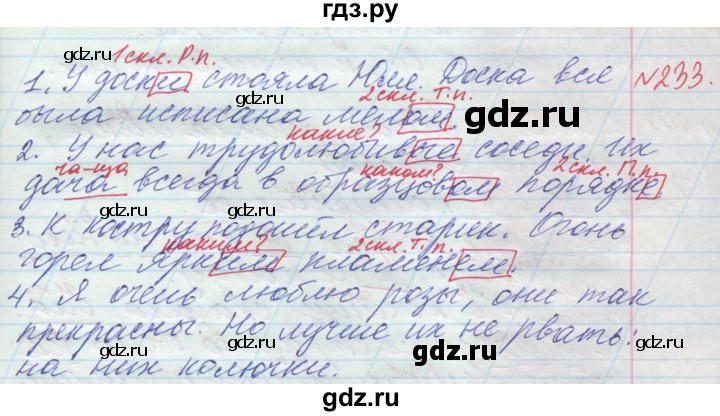 гдз.ру
1 скл. Р.п.
1. У доски стояла Юля. Доска вся №233.
2 скл. Т.п.
была исписана мелом.
какие?
2. У нас трудолюбивые соседи. Их
ча-ща каком? 2 скл. П.п.
дача всегда в образцовом порядке
3. К костру подошёл старик. Огонь
каким? 2 скл. Т.п.
горел ярким пламенем.
4. Я очень люблю розы, они так
прекрасны. Но лучше их не рвать:
на них колючки.
gdz.ru
gdz.ru
gdz.ru
gdz.ru
gdz.ru
gdz.ru
gdz.ru
gdz.ru
gdz.ru